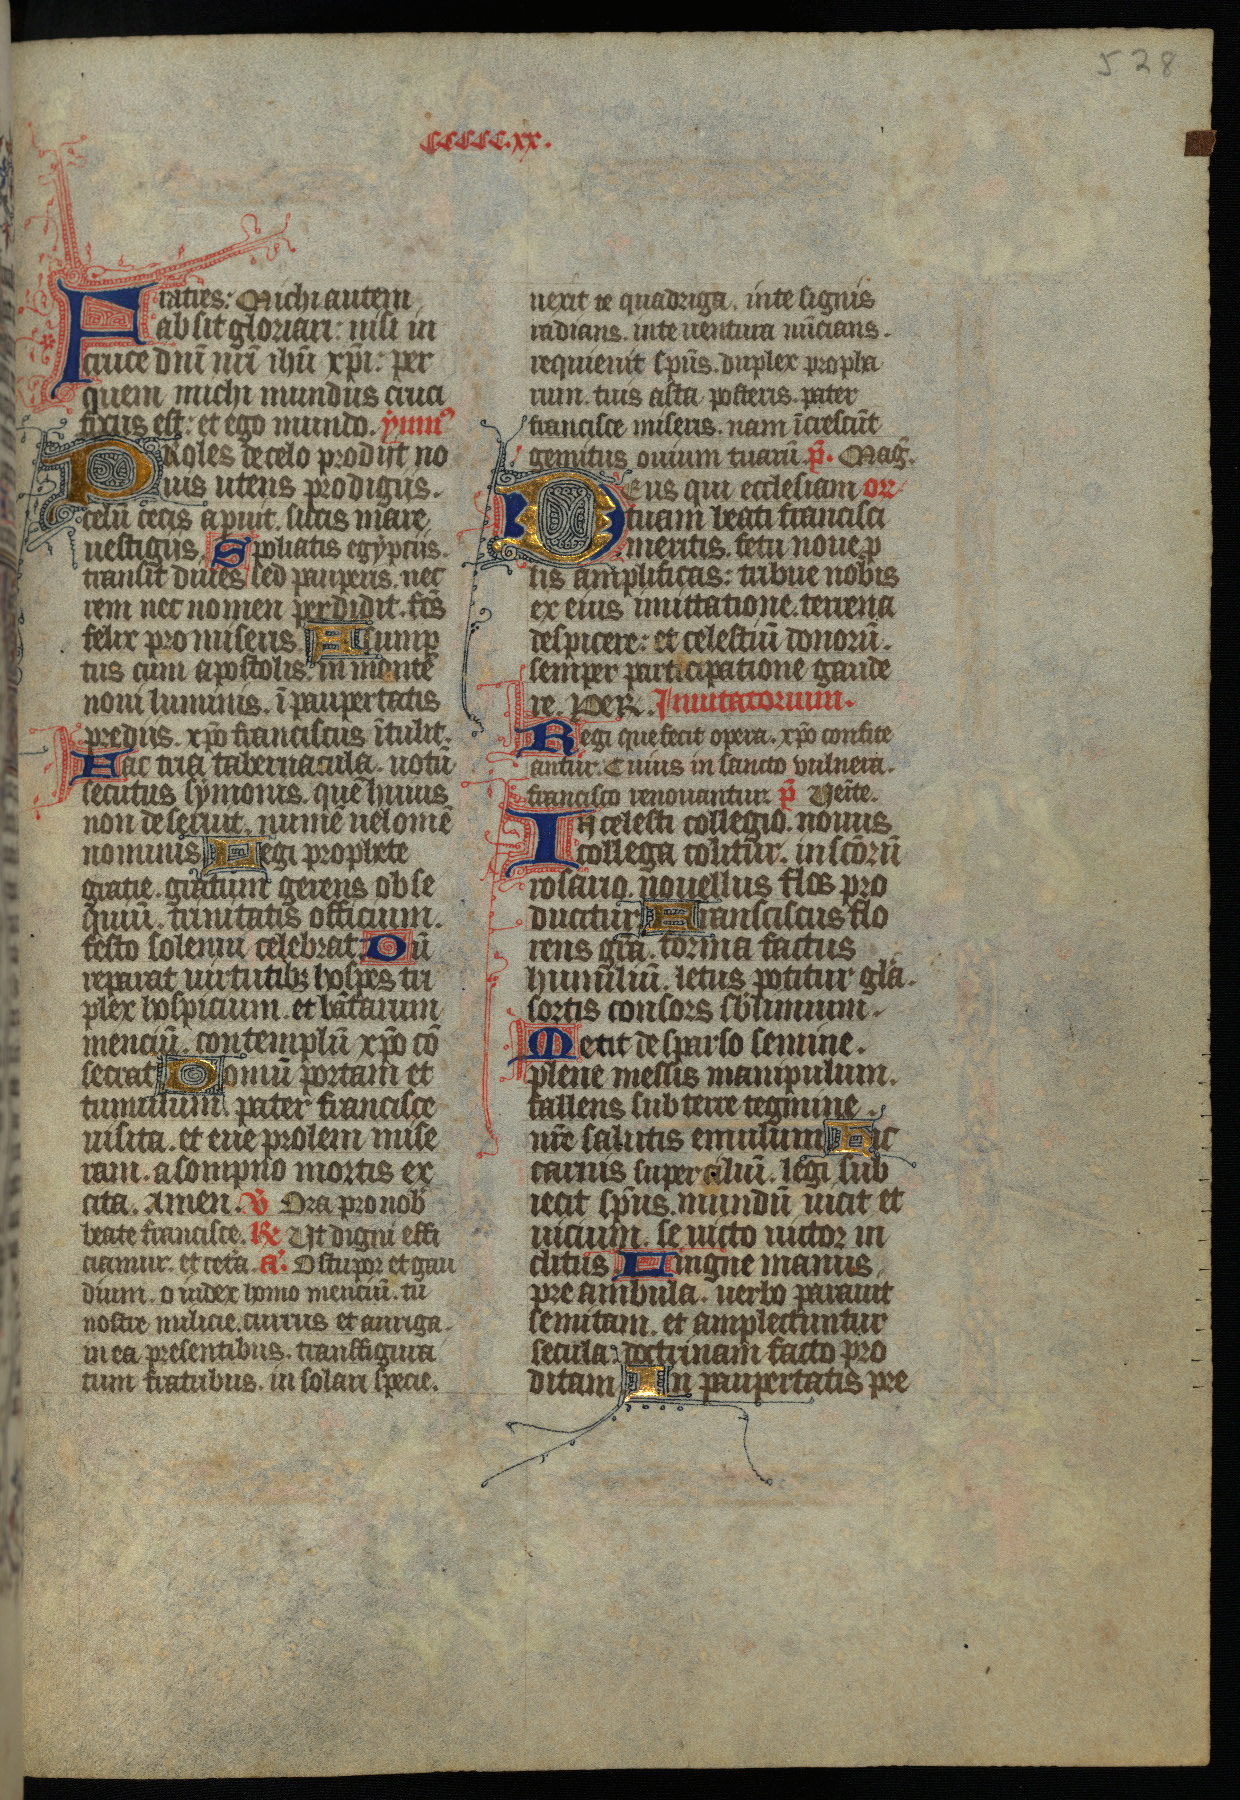 528
CCCCC.xx.
Fratres: Michi autem
absit gloriari: nisi in
cruce dnī nrī ihū xp̄i: per
quem michi mundus cruci
fixus est: et ego mundo. ymn9
PRoles de celo prodijt no
uis utens prodigijs.
celū cecis aperuit. siccis mare
uestigijs. Spoliatis egypciis.
transit diues sed pauperis. nec
rem nec nomen perdidit. fc̄s
felix pro miseris Assump
tus cum apostolis. in monte
noui luminis. ī paupertatis
prediis. xp̄o franciscus ītulit.
Fac tria tabernacula. uotū
secutus symonis. quē huius
non deseruit. numē uel omē
nominis Legi prophete
gratie. gratum gerens obse
quiū. trinitatis officium.
festo solenni celebrat Dū
reparat uirtutibȝ hospes tri
plex hospicium. et bātarum
menciū. contemplū xp̄o cō
secrat Domū portam et
tumulum. pater francisce
uisita. et eue prolem mise
ram. a sompno mortis ex
cita. Amen. V̄ Ora pro nob̄
beate francisce. R Ut digni effi
ciamur. et cetā. a. O stupor et gau
dium. o iudex homo menciū. tu
nostre milicie. currus et auriga.
in ea presentibus. transfigura
tum fratribus. in solari specie.
uexit te quadriga. in te signis
radians. in te uentura nūcians.
requieuit sp̄us. duplex propha
rum. tuis asta posteris. pater
francisce miseris. nam īcrescūt
gemitus ouium tuarū. p̄. Maḡ.
DEus qui ecclesiam or
tuam beati francisci
meritis. fetu noue p
lis amplificas: tribue nobis
ex eius imittatione. terrena
despicere: et celestiū donorū.
semper participatione gaude
re. PeR. Inuitatorium.
Regi que fecit opera. xp̄o confite
antur. Cuius in sancto vulnera.
francisco renouantur. p̄ Uēīte.
IN celesti collegio. nouus
collega colitur. in scōrū
rosario. nouellus flos pro
ducitur Fransciscus flo
rens grā. forma factus
humiliū. letus potitur glā.
sortis consors sublimium.
Metit de sparso semine.
plene messis manipulum.
fallens sub terre tegmine.
nrē salutis emulum Hic
carnis supercilium. legi sub
iecit sp̄us. mundū uicit et
uicium. se uicto uictor in
clitus Lingne manus
preambula. uerbo parauit
semitam. et amplectuntur
secula doctrinam facto pro
ditam In paupertatis pre